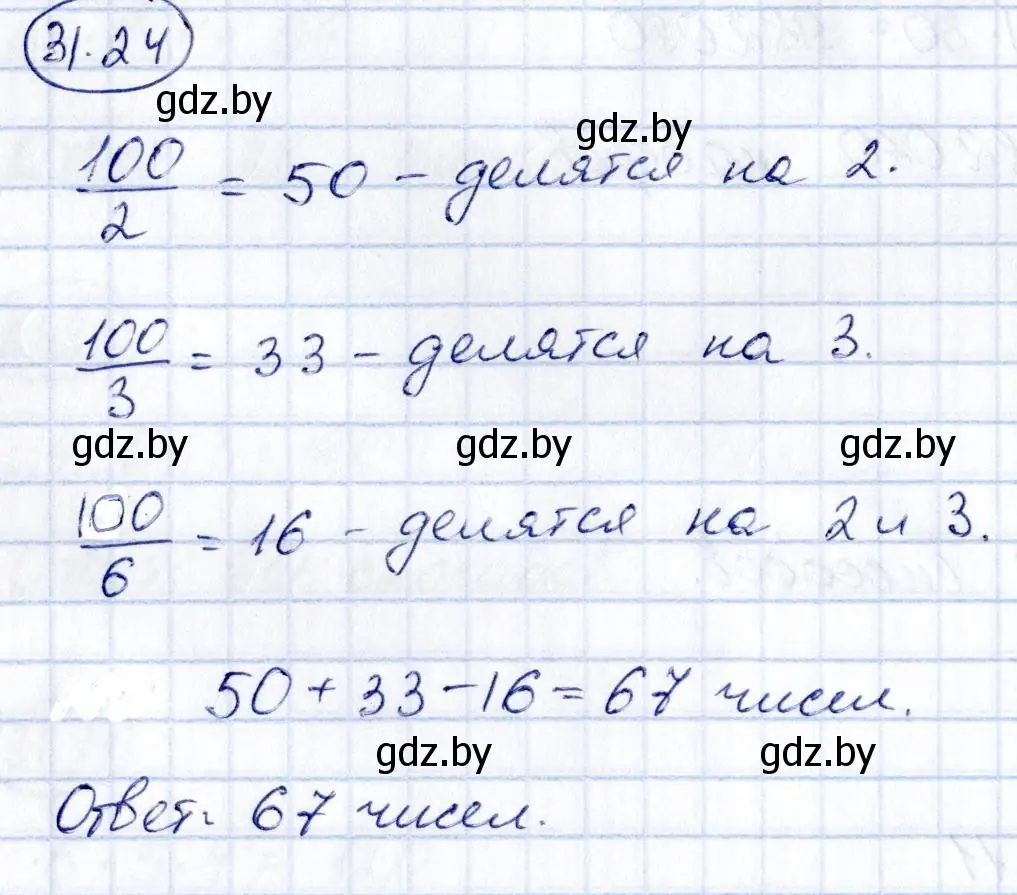 31.24
gdz.by
gdz.by
100/2 = 50 - делятся на 2.
100/3 = 33 - делятся на 3.
gdz.by gdz.by gdz.by
100/6 = 16 - делятся на 2 и 3.
50 + 33 - 16 = 67 чисел.
gdz.by gdz.by
Ответ: 67 чисел.